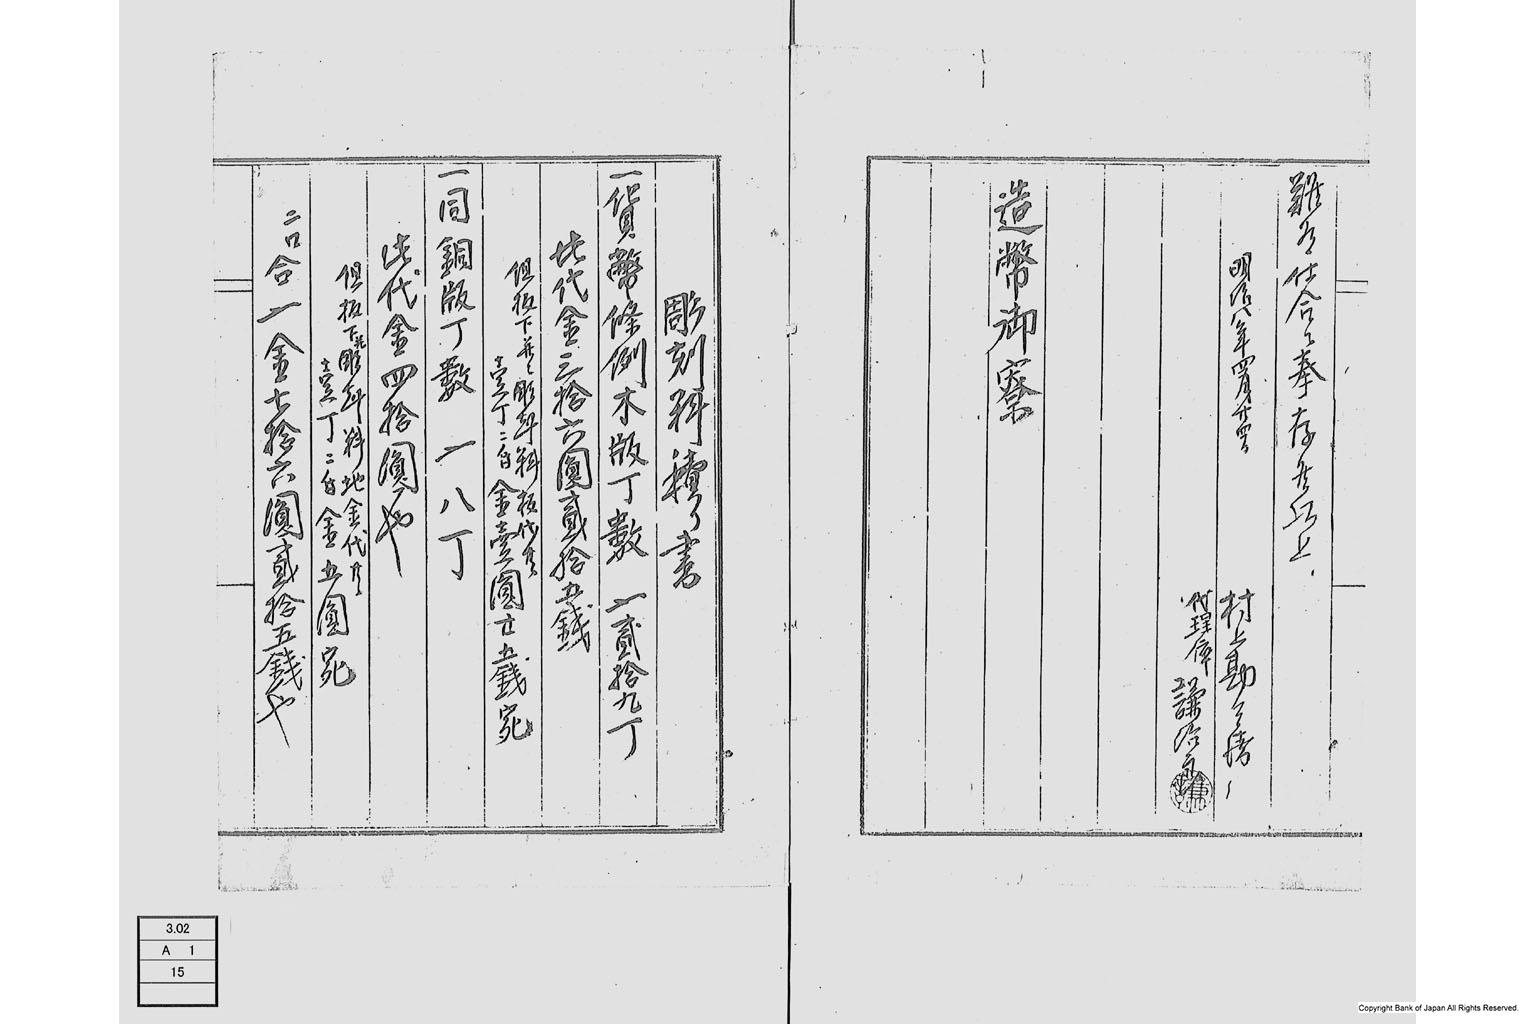 難有仕合ニ奉存候以上
明治八年四月廿四日
村上勘兵衛
代理倅
謙治郎
造幣御寮
彫刻料積り書
一貨幣條例木版丁数 一貳拾九丁
此代金三拾六圓貳拾五銭
但板下并ニ彫刻料板代共
壹丁ニ付金壹圓廿五銭宛
一同銅版丁数 一八丁
此代金四拾圓也
但板下并彫刻料地金代共
壹丁ニ付金五圓宛
二口合一金七拾六圓貳拾五銭也
3.02
A 1
15
Copyright Bank of Japan All Rights Reserved.